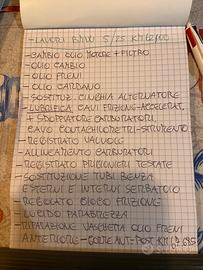 - LAVORI BMW 5/25 KM
- CAMBIO OLIO MOTORE + FILTRO
- OLIO CAMBIO
- OLIO FRENI
- OLIO CARDANO
- SOSTITUZ. CINGHIA ALTERNATORE
- LUBRIFICA CAVI FRIZIONE-ACCELERAT.
+ SDOPPIATORE CARBURATORI,
CAVO CONTACHILOMETRI-STRUMENTO
- REGISTRATO VALVOLE
- ALLINEAMENTO CARBURATORI
- REGISTRATO PRIGIONIERI TESTATE
- SOSTITUZIONE TUBI BENZA
ESTERNI E INTERNI SERBATOIO
- REGOLATO GIOCO FRIZIONE
- LUCIDO PARABREZZA
- RIPARAZIONE VASCHETTA OLIO FRENI
ANTERIORE - GOMME ANT-POST KM